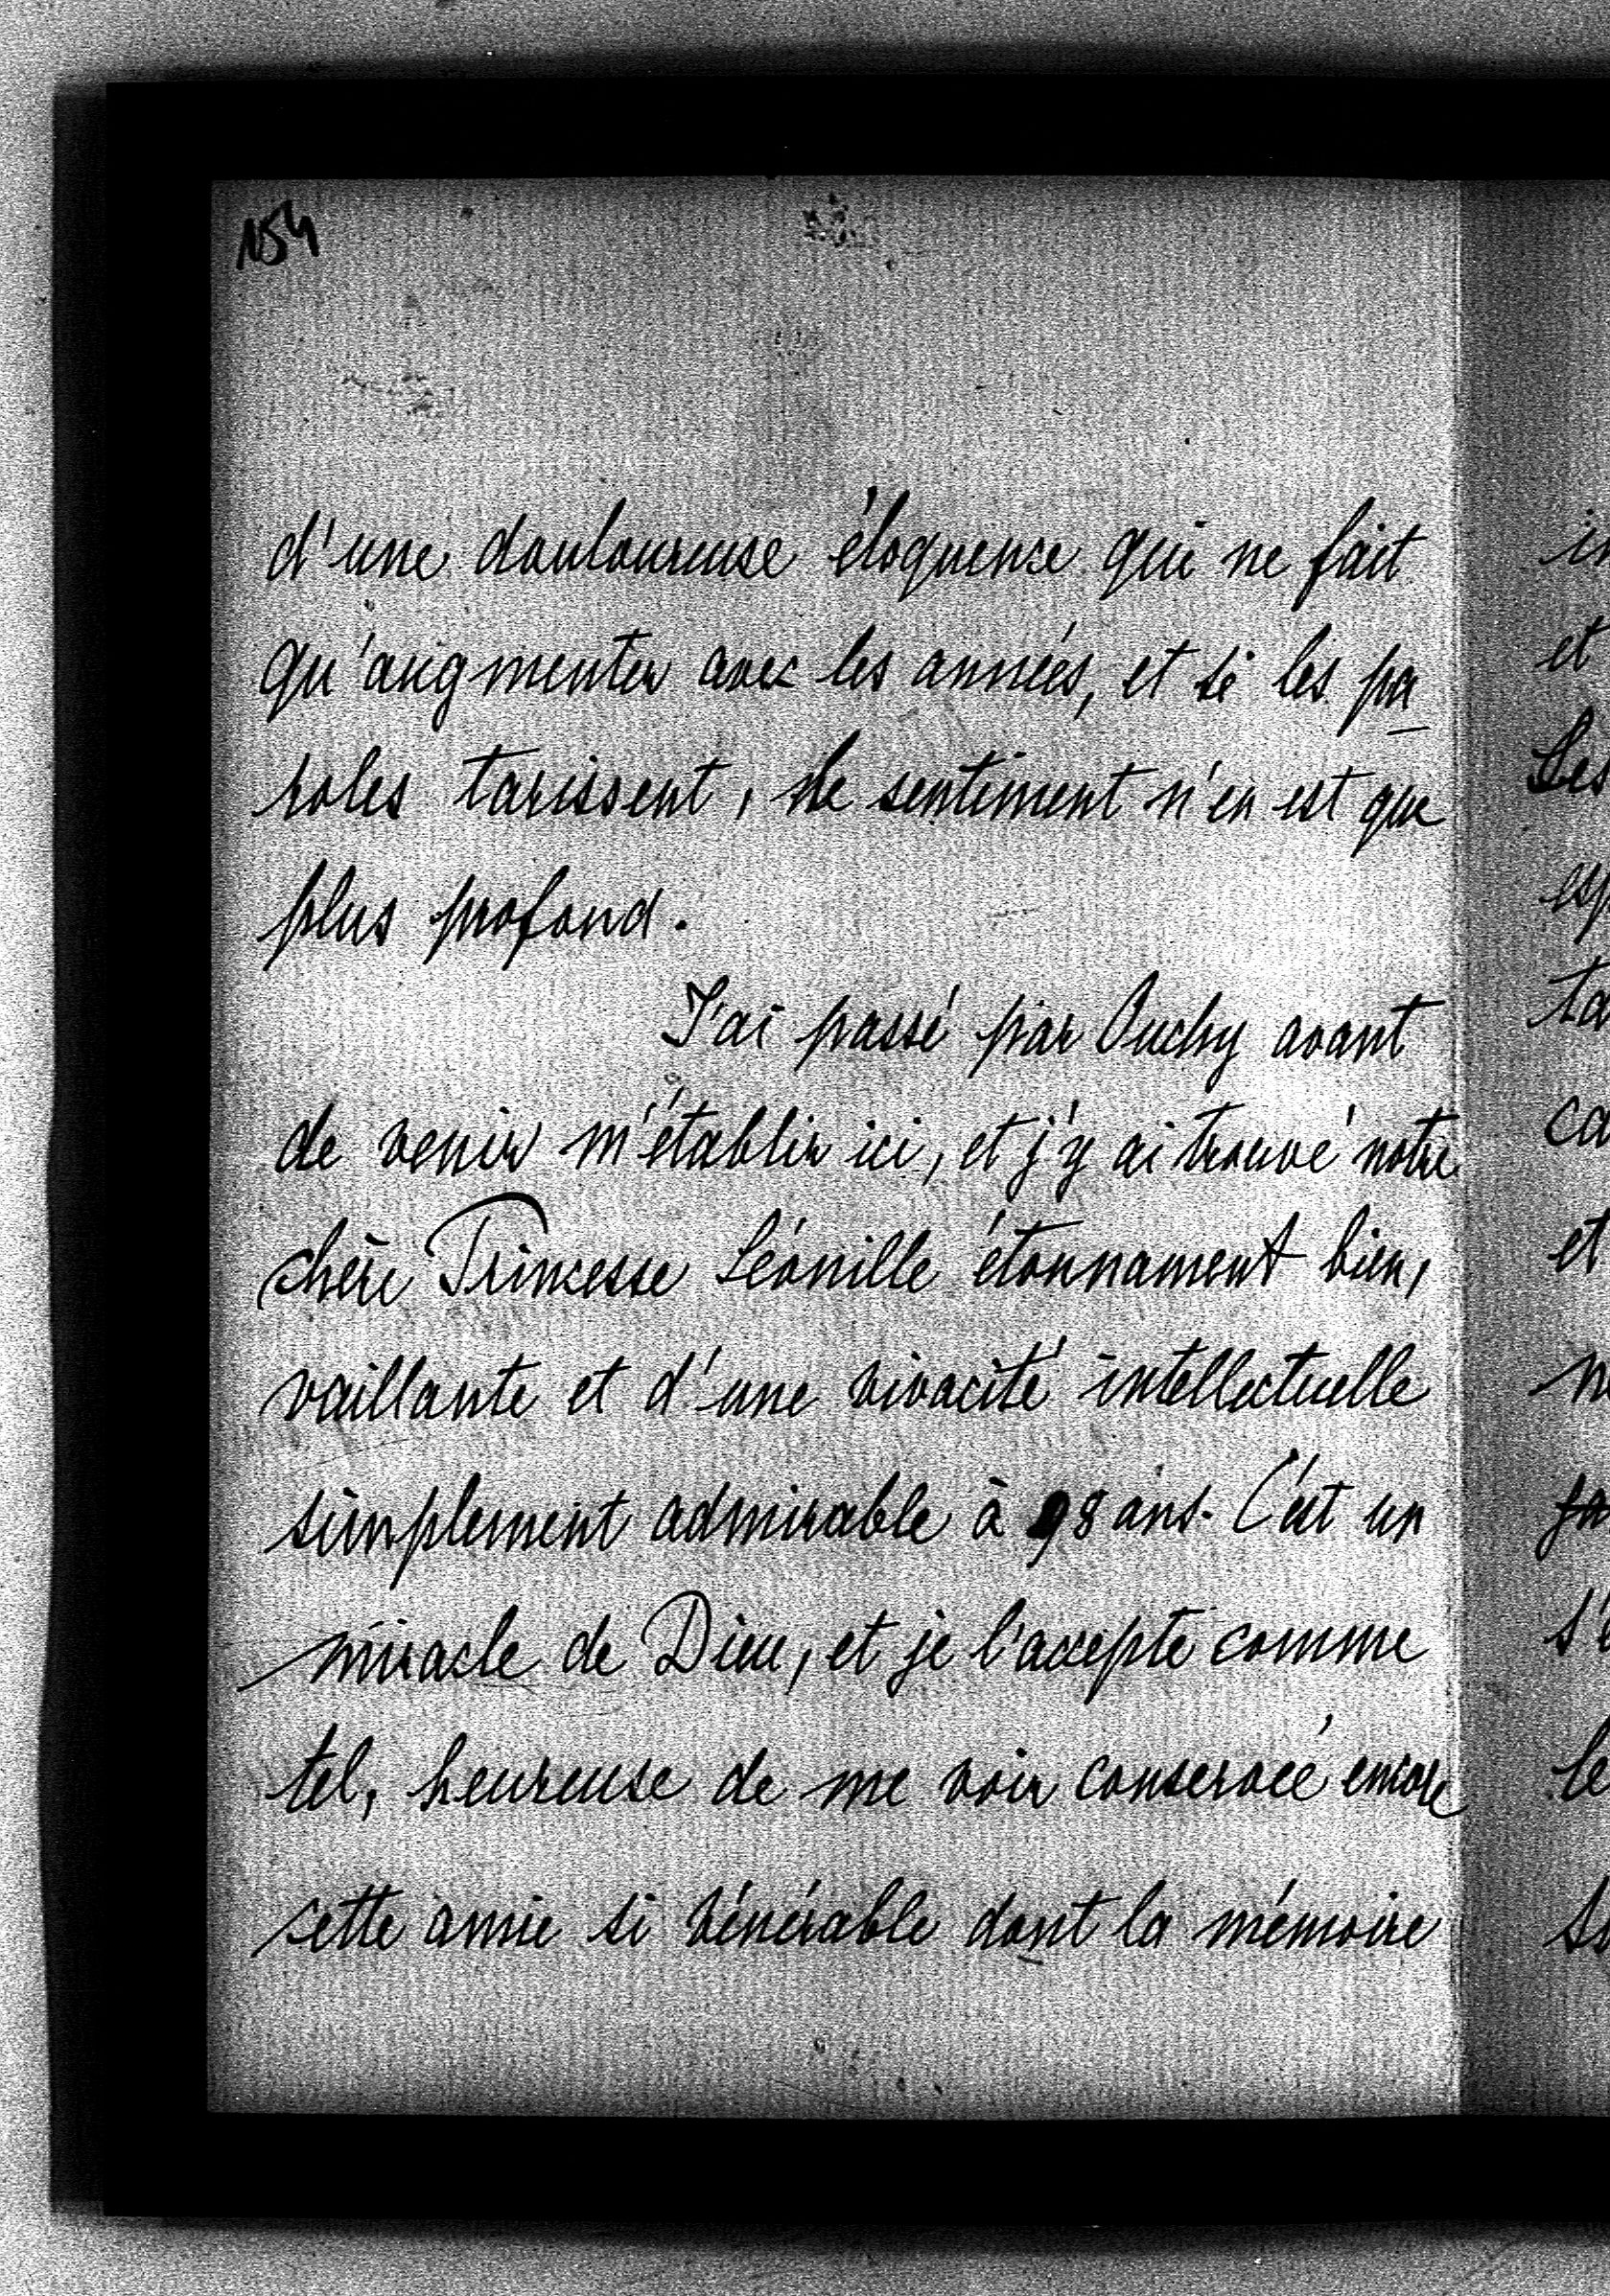 154
d'une douloureuse éloquence qui ne fait
qu'augmenter avec les années, et si les pa-
roles tarissent, le sentiment n'en est que
plus profond.
J'ai passé par Ouchy avant
de venir m'établir ici, et j'y ai trouvé notre
chère Princesse Léonille étonnament bien,
vaillante et d'une vivacité intellectuelle
simplement admirable à 98 ans. C'est un
miracle de Dieu, et je l'accepte comme
tel, heureuse de me voir conservée encore
cette amie si vénérable dont la mémoire
et
Les
et